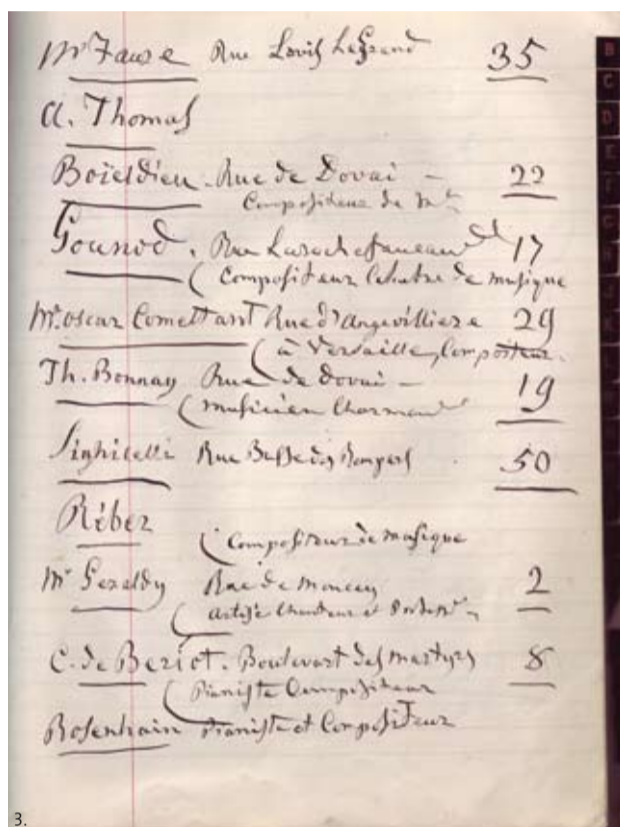 Mr Faure Rue Louis Legrand 35
A. Thomas
Boïeldieu. Rue de Douai – 22
Compositeur de Mque
Gounod. Rue Larochefaucaud 17
Compositeur de musique
Mr. Oscar Comettant Rue d'Angevilliere 29
à Versaille, Composteur.
Th. Bonnay Rue de Douai – 19
musicien Charmant
Sighicelli Rue Basse des Rempars 50
Réber
Compositeur de musique
Mr Geraldy Rue de Moncey 2
artiste Chanteur et
C. de Beriot. Boulevart des martyrs 8
Pianiste Compositeur
Rosenhain Pianiste et Compositeur
B
C
D
E
F
G
H
J
K
L
3.